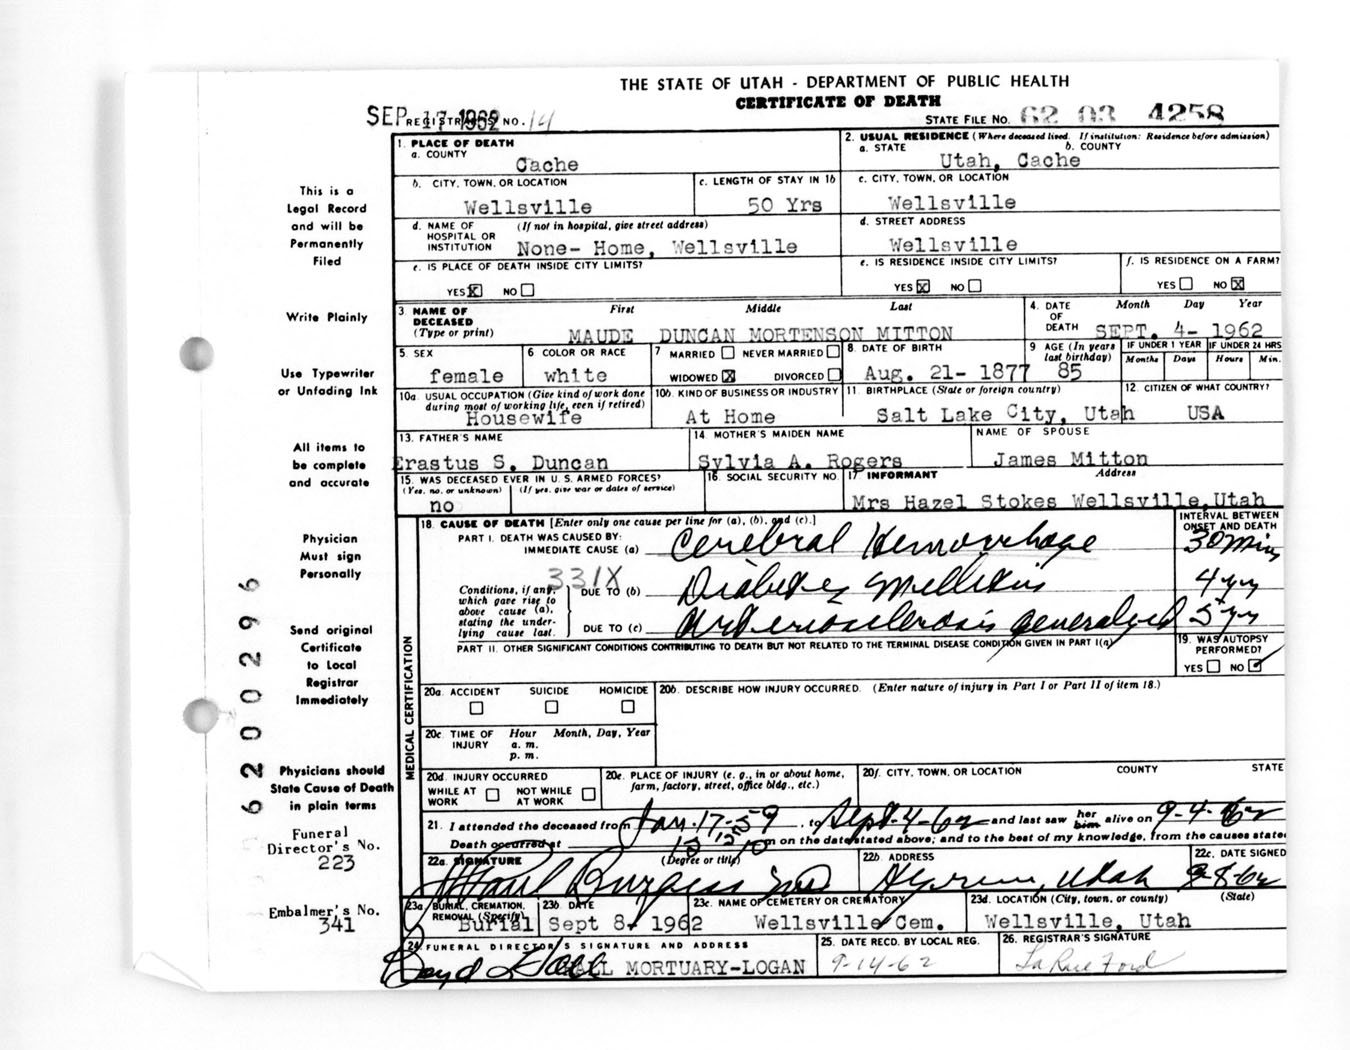 THE STATE OF UTAH - DEPARTMENT OF PUBLIC HEALTH
CERTIFICATE OF DEATH
SEP 17 1962 REGISTRAR'S NO. 14
STATE FILE NO. 62 03 4258
1. PLACE OF DEATH
a. COUNTY
Cache
2. USUAL RESIDENCE (Where deceased lived. If institution: Residence before admission)
a. STATE b. COUNTY
Utah, Cache
b. CITY, TOWN, OR LOCATION
Wellsville
c. LENGTH OF STAY IN 1b
50 Yrs
c. CITY, TOWN, OR LOCATION
Wellsville
d. NAME OF HOSPITAL OR INSTITUTION (If not in hospital, give street address)
None- Home, Wellsville
d. STREET ADDRESS
Wellsville
e. IS PLACE OF DEATH INSIDE CITY LIMITS?
YES X NO
e. IS RESIDENCE INSIDE CITY LIMITS?
YES X NO
f. IS RESIDENCE ON A FARM?
YES NO X
3. NAME OF DECEASED (Type or print) First Middle Last
MAUDE DUNCAN MORTENSON MITTON
4. DATE OF DEATH Month Day Year
SEPT. 4- 1962
5. SEX
female
6 COLOR OR RACE
white
7 MARRIED NEVER MARRIED
WIDOWED X DIVORCED
8. DATE OF BIRTH
Aug. 21- 1877
9 AGE (In years last birthday)
85
IF UNDER 1 YEAR
Months Days
IF UNDER 24 HRS
Hours Min.
10a. USUAL OCCUPATION (Give kind of work done during most of working life, even if retired)
Housewife
10b. KIND OF BUSINESS OR INDUSTRY
At Home
11. BIRTHPLACE (State or foreign country)
Salt Lake City, Utah
12. CITIZEN OF WHAT COUNTRY?
USA
13. FATHER'S NAME
Erastus S. Duncan
14. MOTHER'S MAIDEN NAME
Sylvia A. Rogers
NAME OF SPOUSE
James Mitton
15. WAS DECEASED EVER IN U. S. ARMED FORCES?
(Yes, no, or unknown) (If yes, give war or dates of service)
no
16. SOCIAL SECURITY NO.
17. INFORMANT Address
Mrs Hazel Stokes Wellsville, Utah
MEDICAL CERTIFICATION
18. CAUSE OF DEATH [Enter only one cause per line for (a), (b), and (c).]
INTERVAL BETWEEN ONSET AND DEATH
PART I. DEATH WAS CAUSED BY:
IMMEDIATE CAUSE (a) Cerebral Hemorrhage 30 mins
331X
Conditions, if any, which gave rise to above cause (a), stating the underlying cause last.
DUE TO (b) Diabetes Mellitus 4 yrs
DUE TO (c) Arteriosclerosis generalized 5 yrs
PART II. OTHER SIGNIFICANT CONDITIONS CONTRIBUTING TO DEATH BUT NOT RELATED TO THE TERMINAL DISEASE CONDITION GIVEN IN PART I(a)
19. WAS AUTOPSY PERFORMED?
YES NO
20a. ACCIDENT SUICIDE HOMICIDE
20b. DESCRIBE HOW INJURY OCCURRED. (Enter nature of injury in Part I or Part II of item 18.)
20c. TIME OF INJURY Hour Month, Day, Year
a. m.
p. m.
20d. INJURY OCCURRED
WHILE AT WORK NOT WHILE AT WORK
20e. PLACE OF INJURY (e. g., in or about home, farm, factory, street, office bldg., etc.)
20f. CITY, TOWN, OR LOCATION COUNTY STATE
21. I attended the deceased from Jan-17-59, to Sept-4-62 and last saw her him alive on 9-4-62
Death occurred at m on the date stated above; and to the best of my knowledge, from the causes state
22a. SIGNATURE (Degree or title)
Paul Burgess MD
22b. ADDRESS
Hyrum, Utah
22c. DATE SIGNED
9-8-62
23a BURIAL, CREMATION, REMOVAL (Specify)
Burial
23b. DATE
Sept 8, 1962
23c. NAME OF CEMETERY OR CREMATORY
Wellsville Cem.
23d. LOCATION (City, town, or county) (State)
Wellsville, Utah
24. FUNERAL DIRECTOR'S SIGNATURE AND ADDRESS
Boyd Hall HALL MORTUARY-LOGAN
25. DATE RECD. BY LOCAL REG.
9-14-62
26. REGISTRAR'S SIGNATURE
LaRue Ford
This is a
Legal Record
and will be
Permanently
Filed
Write Plainly
Use Typewriter
or Unfading Ink
All items to
be complete
and accurate
Physician
Must sign
Personally
Send original
Certificate
to Local
Registrar
Immediately
Physicians should
State Cause of Death
in plain terms
Funeral
Director's No.
223
Embalmer's No.
341
62000296